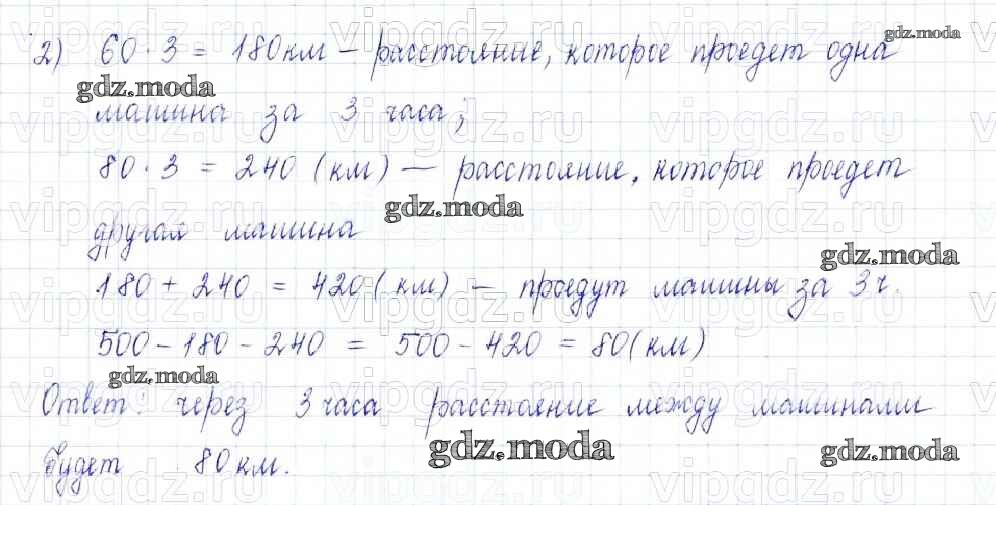 2) 60 · 3 = 180км – расстояние, которое проедет одна
машина за 3 часа;
80 · 3 = 240 (км) – расстояние, которое проедет
другая машина
180 + 240 = 420 (км) – проедут машины за 3 ч.
500 – 180 – 240 = 500 – 420 = 80 (км)
Ответ: через 3 часа расстояние между машинами
будет 80 км.
gdz.moda
gdz.moda
gdz.moda
gdz.moda
gdz.moda
gdz.moda
gdz.moda
vipgdz.ru vipgdz.ru vipgdz.ru
vipgdz.ru vipgdz.ru vipgdz.ru
vipgdz.ru vipgdz.ru vipgdz.ru
vipgdz.ru vipgdz.ru vipgdz.ru
vipgdz.ru vipgdz.ru vipgdz.ru
vipgdz.ru vipgdz.ru vipgdz.ru